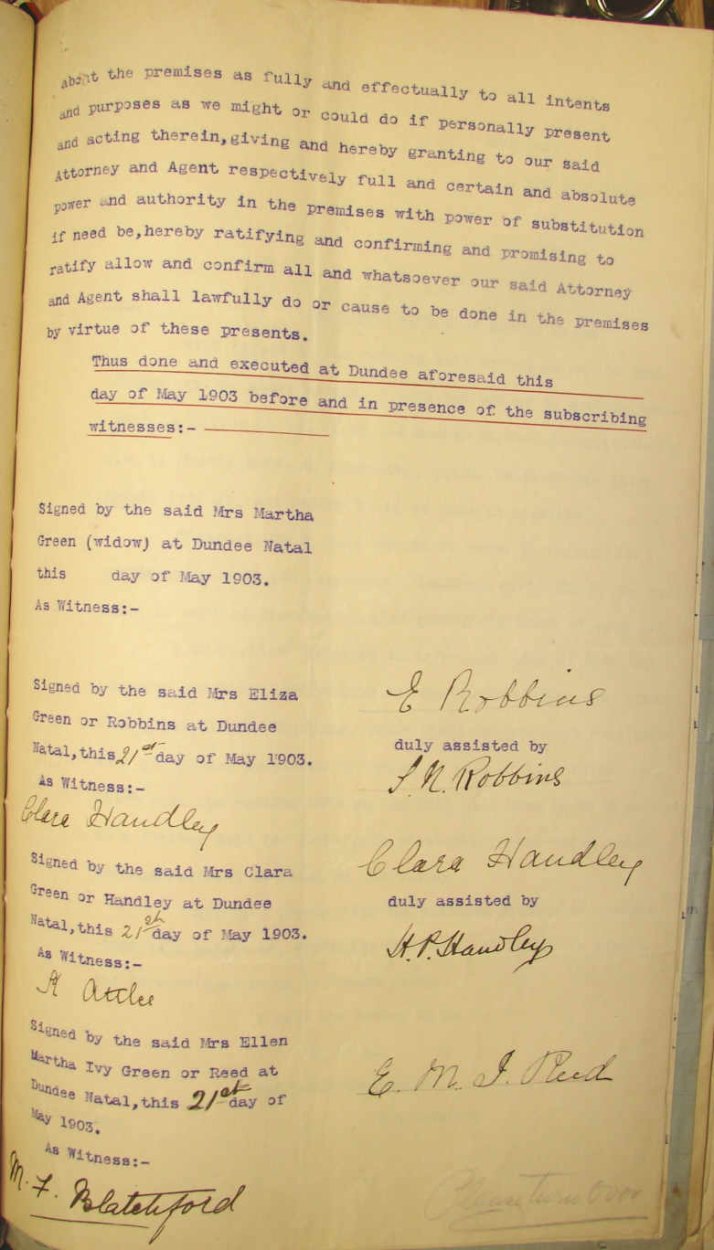 about the premises as fully and effectually to all intents
and purposes as we might or could do if personally present
and acting therein, giving and hereby granting to our said
Attorney and Agent respectively full and certain and absolute
power and authority in the premises with power of substitution
if need be, hereby ratifying and confirming and promising to
ratify allow and confirm all and whatsoever our said Attorney
and Agent shall lawfully do or cause to be done in the premises
by virtue of these presents.
Thus done and executed at Dundee aforesaid this
day of May 1903 before and in presence of the subscribing
witnesses:-
Signed by the said Mrs Martha
Green (widow) at Dundee Natal
this day of May 1903.
As Witness:-
Signed by the said Mrs Eliza
Green or Robbins at Dundee
Natal, this 21st day of May 1903.
As Witness:-
Clara Handley
E Robbins
duly assisted by
S. N. Robbins
Signed by the said Mrs Clara
Green or Handley at Dundee
Natal, this 21st day of May 1903.
As Witness:-
A Attlee
Clara Handley
duly assisted by
H. P. Handley
Signed by the said Mrs Ellen
Martha Ivy Green or Reed at
Dundee Natal, this 21st day of
May 1903.
As Witness:-
M. F. Blatchford
E. M. I. Reed
Please turn Over